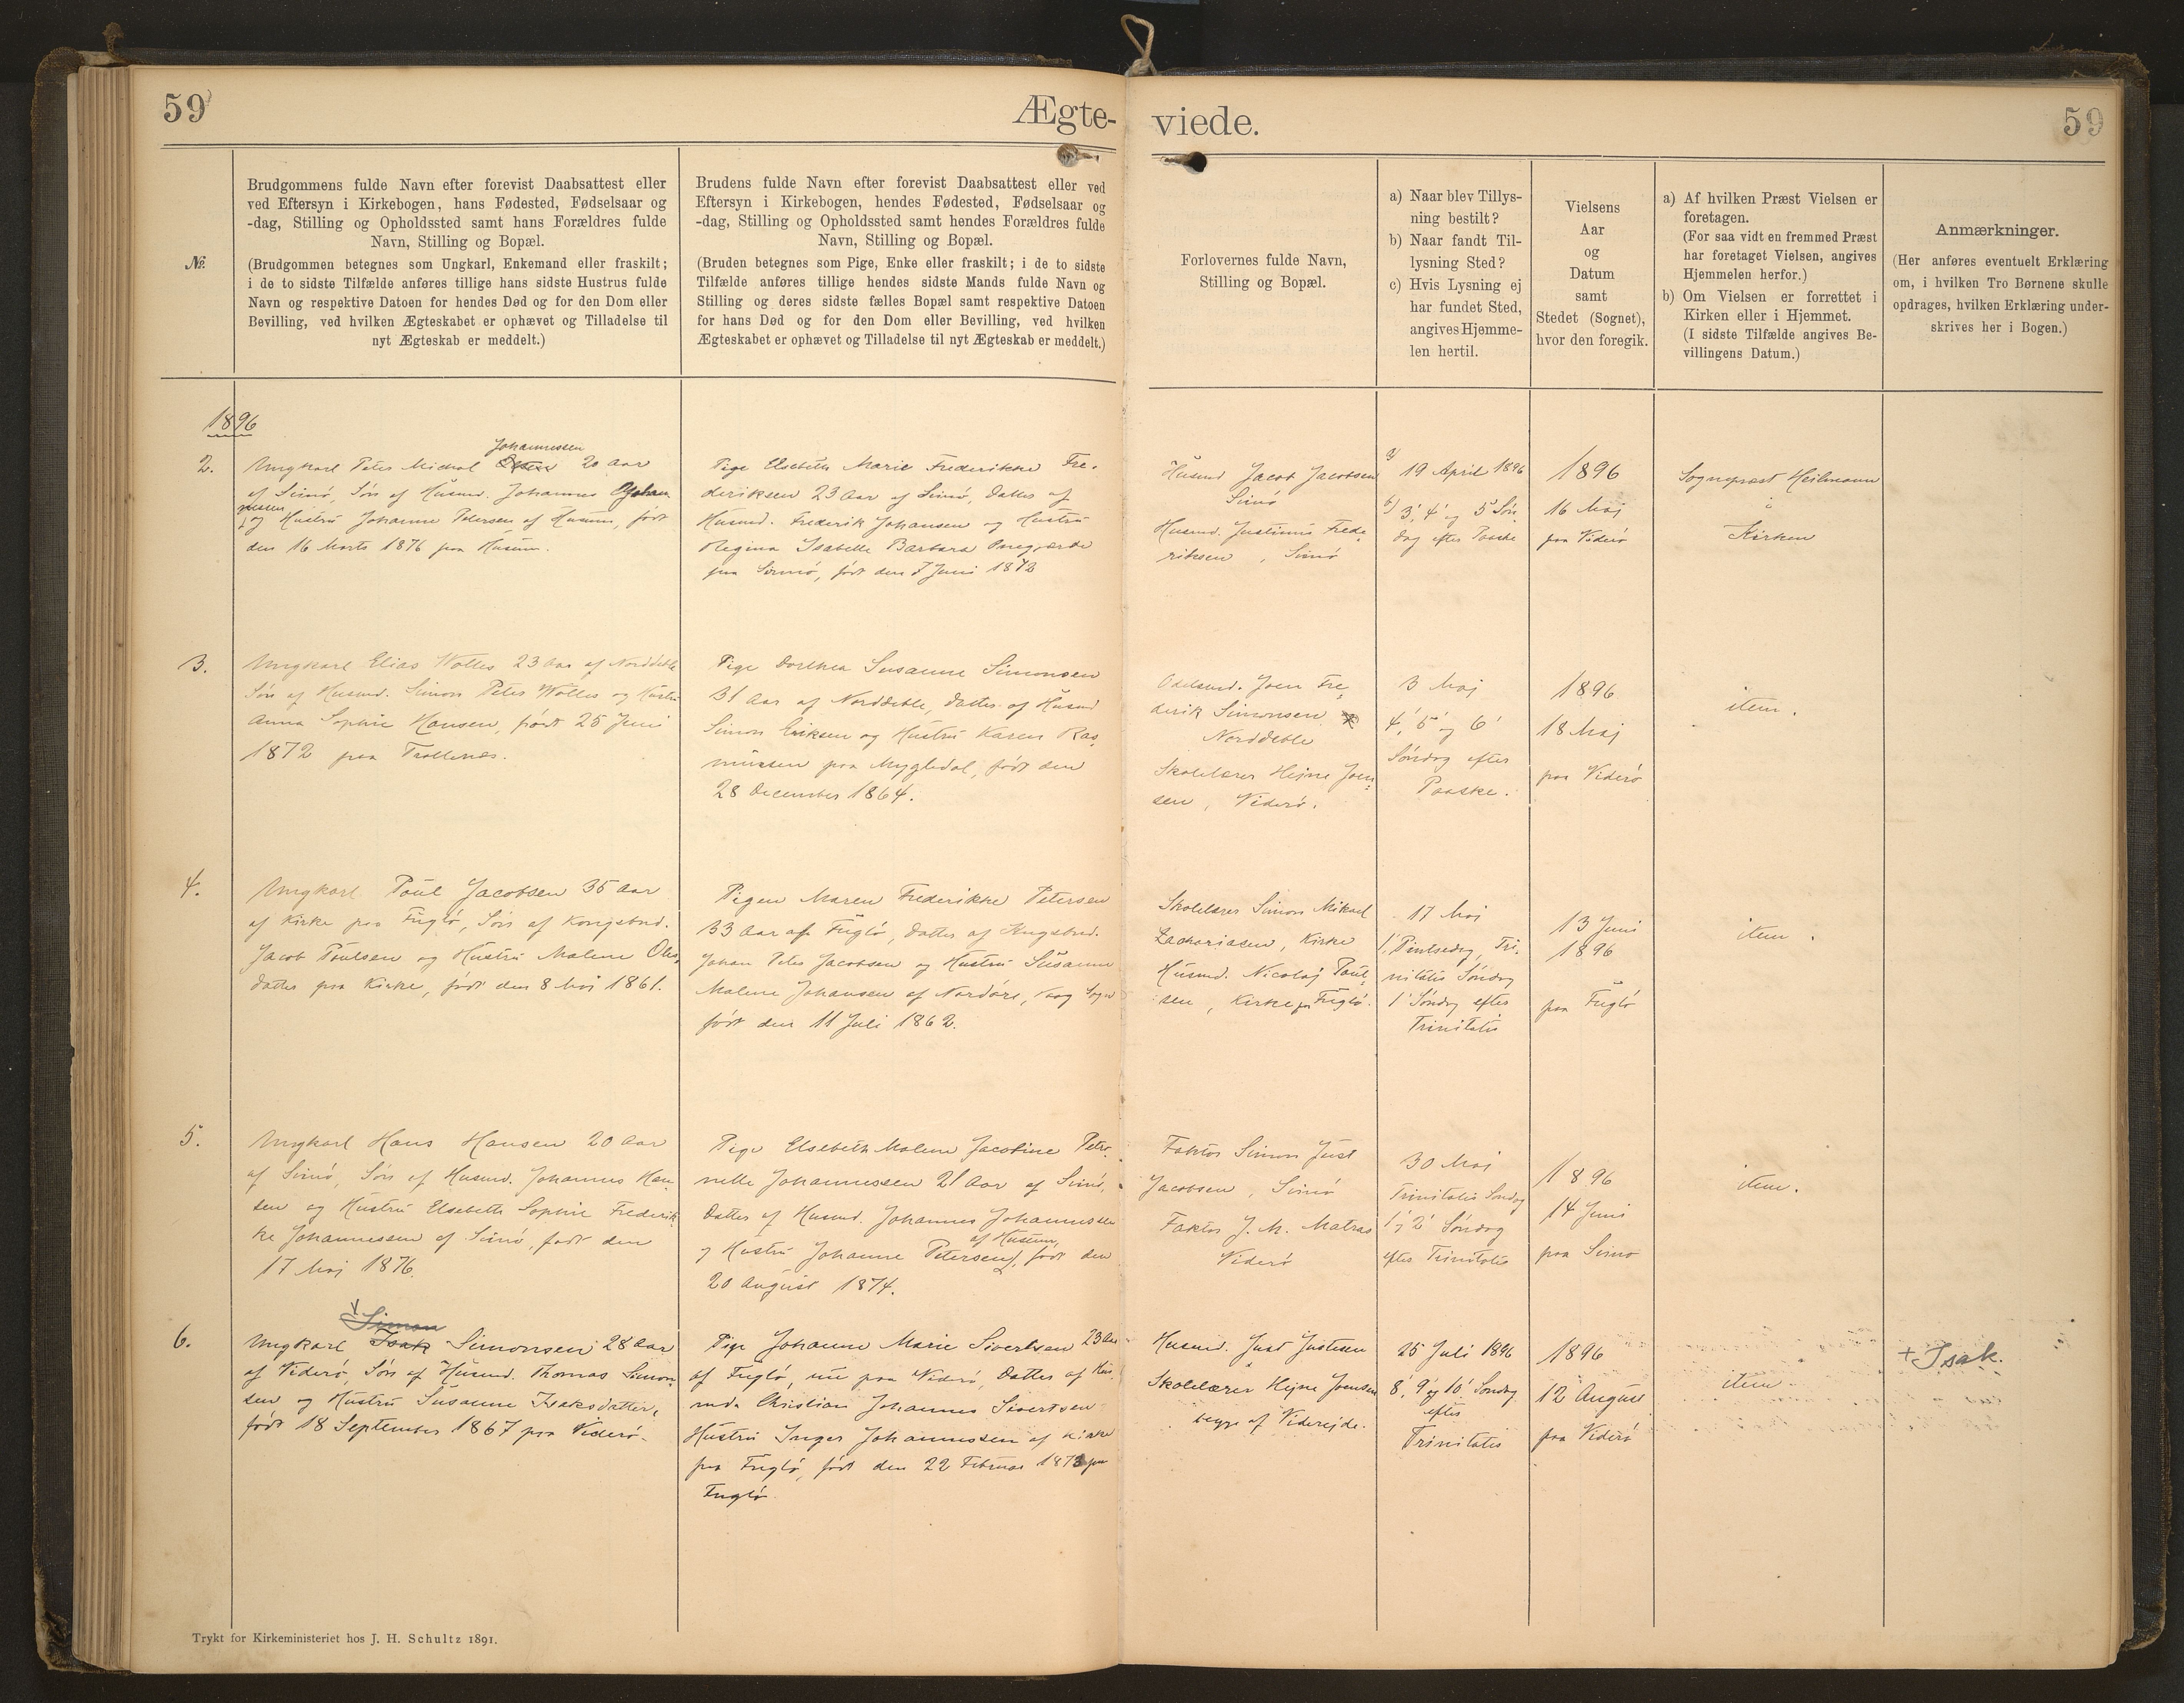 59
Ægte-
viede.
59
№
Brudgommens fulde Navn efter forevist Daabsattest eller
ved Eftersyn i Kirkebogen, hans Fødested, Fødselsaar og
-dag, Stilling og Opholdssted samt hans Forældres fulde
Navn, Stilling og Bopæl.
(Brudgommen betegnes som Ungkarl, Enkemand eller fraskilt;
i de to sidste Tilfælde anføres tillige hans sidste Hustrus fulde
Navn og respektive Datoen for hendes Død og for den Dom eller
Bevilling, ved hvilken Ægteskabet er ophævet og Tilladelse til
nyt Ægteskab er meddelt.)
Brudens fulde Navn efter forevist Daabsattest eller ved
Eftersyn i Kirkebogen, hendes Fødested, Fødselsaar og
-dag, Stilling og Opholdssted samt hendes Forældres fulde
Navn, Stilling og Bopæl.
(Bruden betegnes som Pige, Enke eller fraskilt; i de to sidste
Tilfælde anføres tillige hendes sidste Mands fulde Navn og
Stilling og deres sidste fælles Bopæl samt respektive Datoen
for hans Død og for den Dom eller Bevilling, ved hvilken
Ægteskabet er ophævet og Tilladelse til nyt Ægteskab er meddelt.)
Forlovernes fulde Navn,
Stilling og Bopæl.
a) Naar blev Tillys-
ning bestilt?
b) Naar fandt Til-
lysning Sted?
c) Hvis Lysning ej
har fundet Sted,
angives Hjemme-
len hertil.
Vielsens
Aar
og
Datum
samt
Stedet (Sognet),
hvor den foregik.
a) Af hvilken Præst Vielsen er
foretagen.
(For saa vidt en fremmed Præst
har foretaget Vielsen, angives
Hjemmelen herfor.)
b) Om Vielsen er forrettet i
Kirken eller i Hjemmet.
(I sidste Tilfælde angives Be-
villingens Datum.)
Anmærkninger.
(Her anføres eventuelt Erklæring
om, i hvilken Tro Børnene skulle
opdrages, hvilken Erklæring under-
skrives her i Bogen.)
1896
2.
Johannessen
Ungkarl Peter Michal 20 Aar
af Svinø, Søn af Husmd. Johannes Johan
nessen
og Hustru Johanne Petersen af Husum, født
den 16 Marts 1876 paa Husum.
Pige Elsebeth Marie Frederikke Fre-
deriksen 23 Aar af Svinø, Datter af
Husmd. Frederik Johansen og Hustru
Regina Isabelle Barbara
paa Svinø, født den 7 Juni 1872
Husmd Jacob Jacobsen
Svinø
Husmd. Justinus Frede-
riksen, Svinø
a) 19 April 1896
b) 3', 4' og 5' Søn-
dag efter Paaske
1896
16 Maj
paa Viderø
Sognepræst Heilmann
i
Kirken
3.
Ungkarl Elias Wolles 23 Aar af Norddeble
Søn af Husmd. Simon Peter Wolles og Hustru
Anna Sophie Hansen, født 25 Juni
1872 paa Trøllenæs.
Pige Dorthea Susanne Simonsen
31 Aar af Norddeble, Datter af Husmd
Simon Eriksen og Hustru Karen Ras-
mussen paa Mygledal, født den
28 December 1864.
Odelsmd. Joen Fre-
derik Simonsen
Norddeble
Skolelærer Hejne Joen-
sen, Viderø.
3 Maj
4', 5' og 6'
Søndag efter
Paaske.
1896
18 Maj
paa Viderø
item.
4.
Ungkarl Poul Jacobsen 35 Aar
af Kirke paa Fuglø, Søn af Kongsbnd.
Jacob Poulsen og Hustru Malene Oles-
datter paa Kirke, født den 8 Maj 1861.
Pigen Maren Frederikke Petersen
33 Aar af Fuglø, Datter af Kngsbnd.
Johan Peter Jacobsen og Hustru Susanne
Malene Johansen af Nordøre,
født den 11 Juli 1862.
Skolelærer Simon Mikael
Zachariasen, Kirke
Husmd. Nicolaj Poul-
sen, Kirke paa Fuglø.
17 Maj
1. Pintsedag, Tri-
nitatis Søndag
1' Søndag efter
Trinitatis
13 Juni
1896
paa Fuglø
item.
5.
Ungkarl Hans Hansen 20 Aar
af Svinø, Søn af Husmd. Johannes Han-
sen og Hustru Elsebeth Sophie Frederik-
ke Johannessen af Svinø, født den
17 Maj 1876.
Pige Elsebeth Malene Jacobine Petro-
nelle Johannessen 21 Aar af Svinø,
Datter af Husmd. Johannes Johannessen
af Husum,
og Hustru Johanne Petersen, født den
20 August 1874.
Faktor Simon Just
Jacobsen, Svinø
Faktor J. M. Matras
Viderø
30 Maj
Trinitatis Søndag
1' og 2' Søndag
efter Trinitatis
1896
14 Juni
paa Svinø
item.
6.
Simon
Ungkarl Isak Simonsen 28 Aar
af Viderø, Søn af Husmd. Thomas Simon-
sen og Hustru Susanne Isaksdatter,
født 18 September 1867 paa Viderø.
Pige Johanne Marie Sivertsen 23 Aar
af Fuglø, nu paa Viderø, Datter af Hus-
md. Christian Johannes Sivertsen
Hustru Inger Johannessen af Kirke
paa Fuglø, født den 22 Februar 1873 paa
Fuglø.
Husmd. Just Justesen
Skolelærer Hejne Joensen
begge af Viderejde.
25 Juli 1896
8', 9' og 10' Søndag
efter
Trinitatis
1896
12 August
paa Viderø
item.
+ Isak.
Trykt for Kirkeministeriet hos J. H. Schultz 1891.